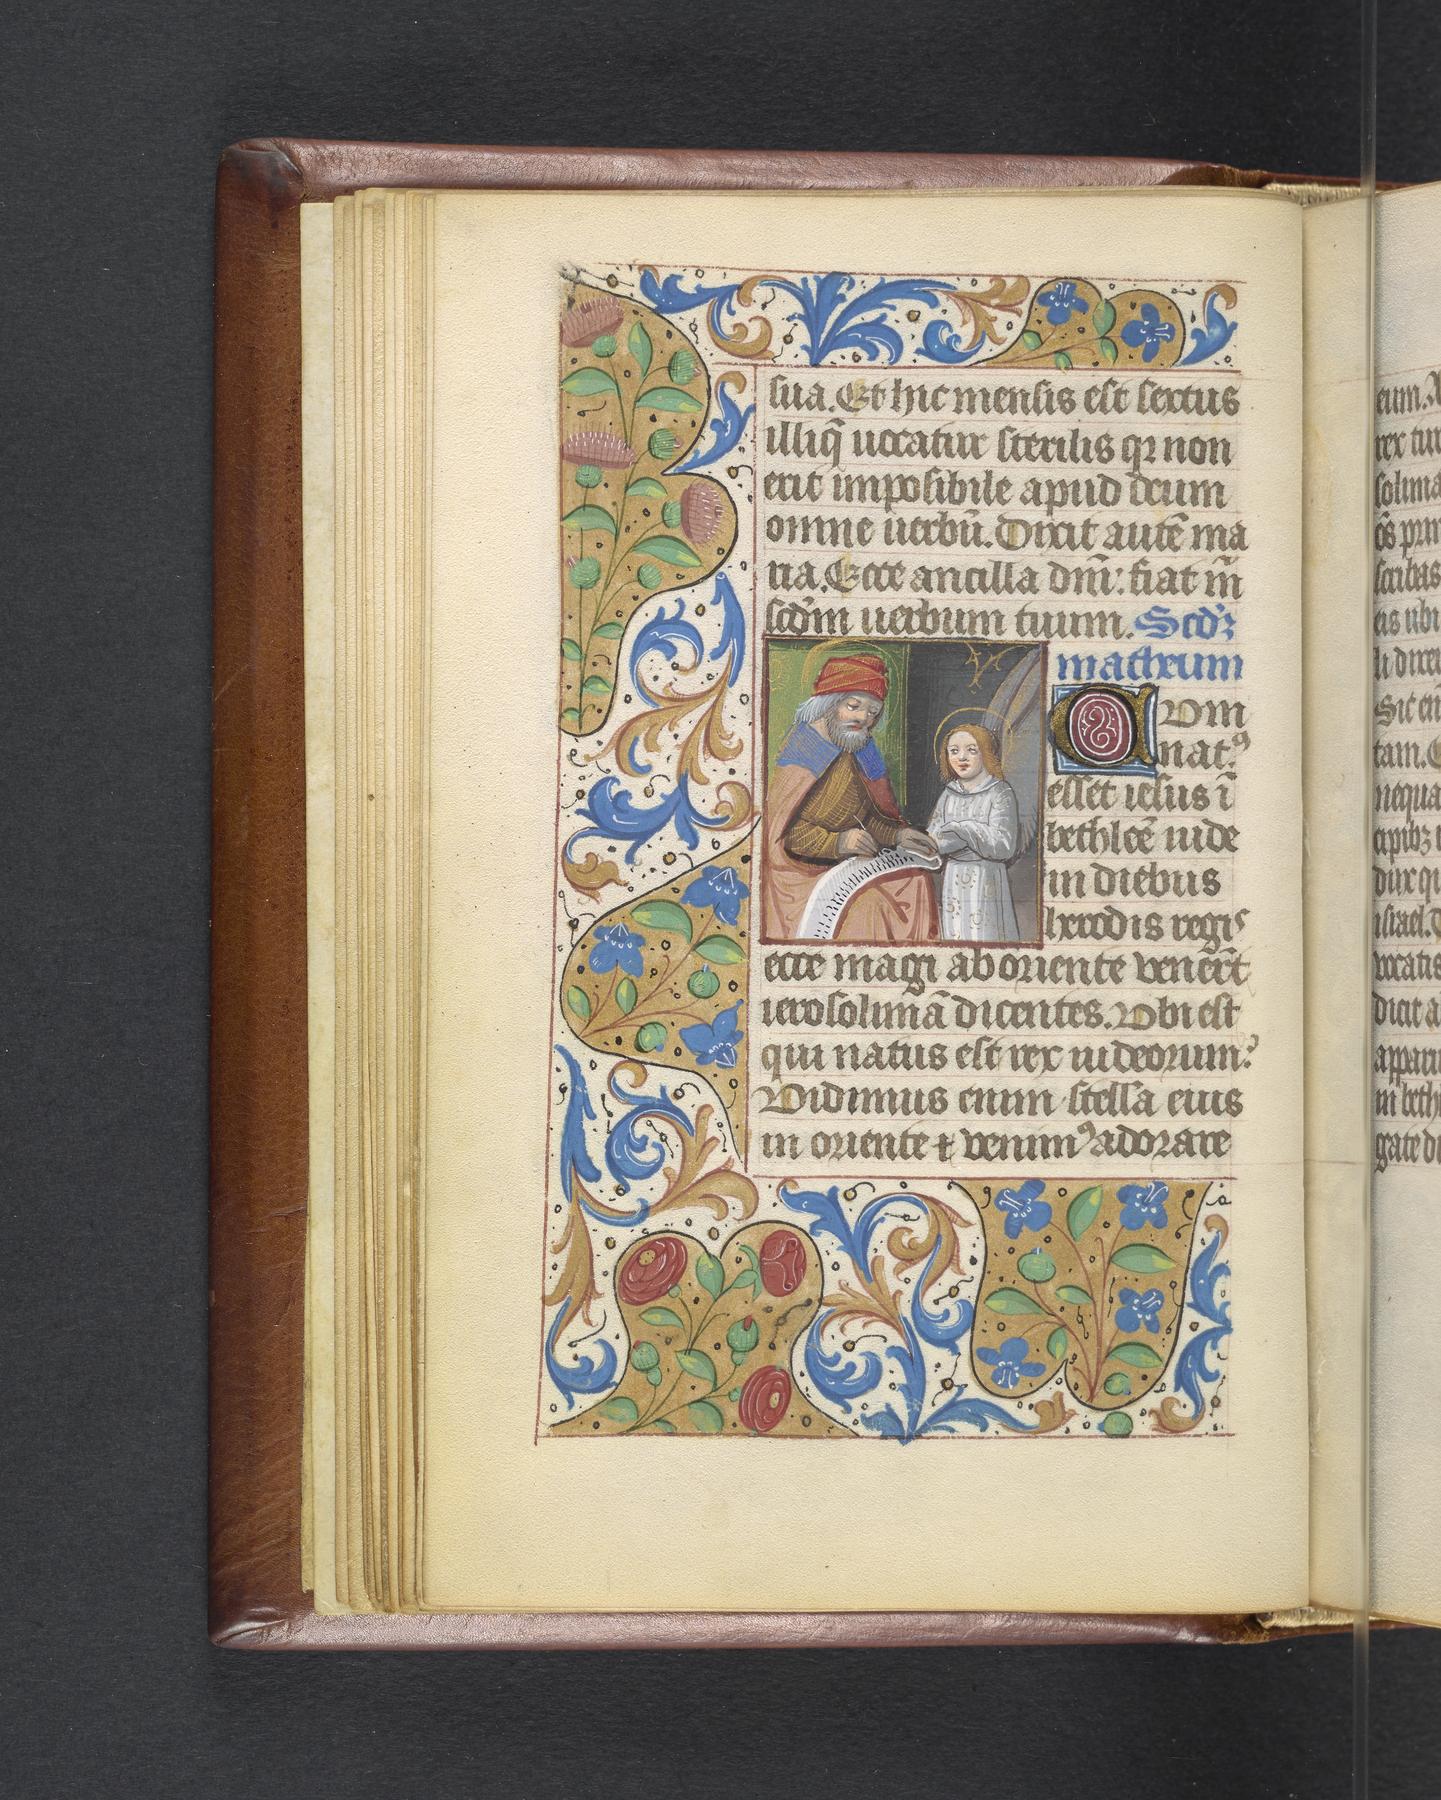 sua. Et hic mensis est sextus
illi q̃ uocatur sterilis qꝛ non
erit impossibile apud deum
omne uerbũ. Dixit autẽ ma
ria. Ecce ancilla dñi: fiat m̃
scd̃m uerbum tuum. Scd̃ꝫ
matheum
CVm
natꝰ
esset iesus ĩ
bethleẽ iude
in diebus
herodis regis
ecce magi ab oriente venerũt
ierosolimã dicentes. Vbi est
qui natus est rex iudeorum?
Vidimus enim stella eius
in oriente ⁊ venimꝰ adorare
eum.
rex tur
solima
õs prin
scribas
eis ubi
li dixer
Sic en
tam.
nequa
cipibꝫ
dux qui
israel.
vocatis
dicit a
apparu
in beth
gate di